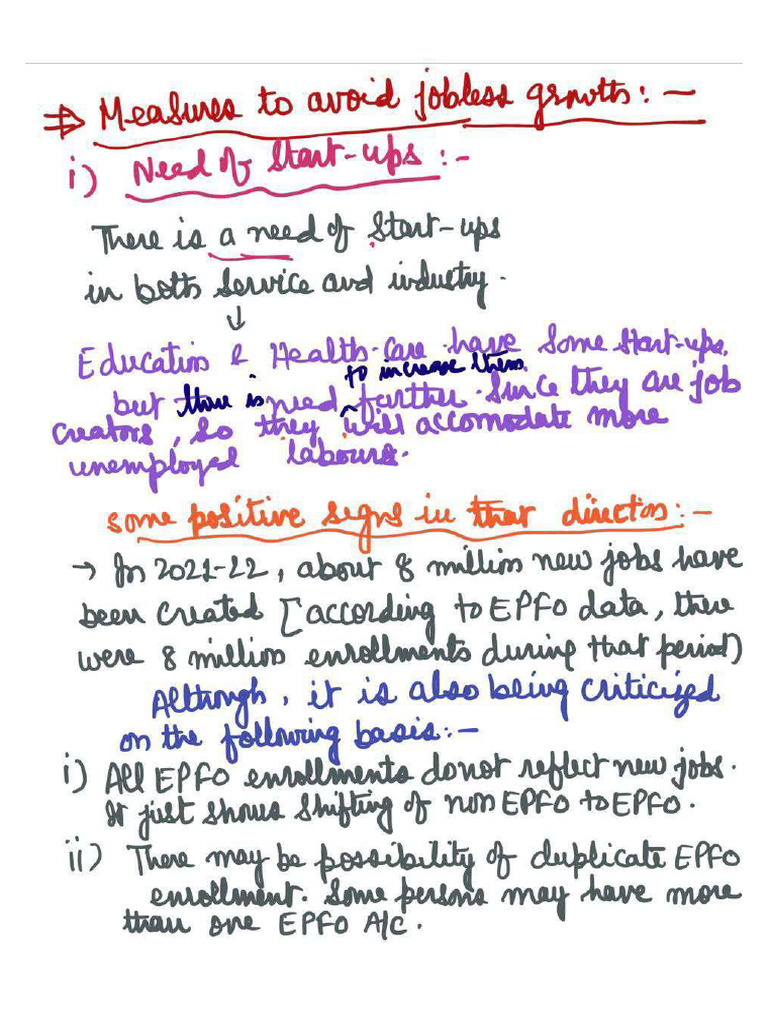 ⇒ Measures to avoid jobless growth: -
i) Need of Start-ups :-
There is a need of Start-ups
in both Service and industry.
↓
Education & Health-Care have Some Start-ups,
to increase them
but there is need ^ further. Since they are job
creators, so they will accomodate more
unemployed labours.
some positive signs in that direction: -
→ In 2021-22, about 8 million new jobs have
been created [according to EPFO data, there
were 8 million enrollments during that period)
Although, it is also being criticized
on the following basis: -
i) All EPFO enrollments donot reflect new jobs.
It just shows shifting of non EPFO to EPFO.
ii) There may be possibility of duplicate EPFO
enrollment. Some persons may have more
than one EPFO A/C.